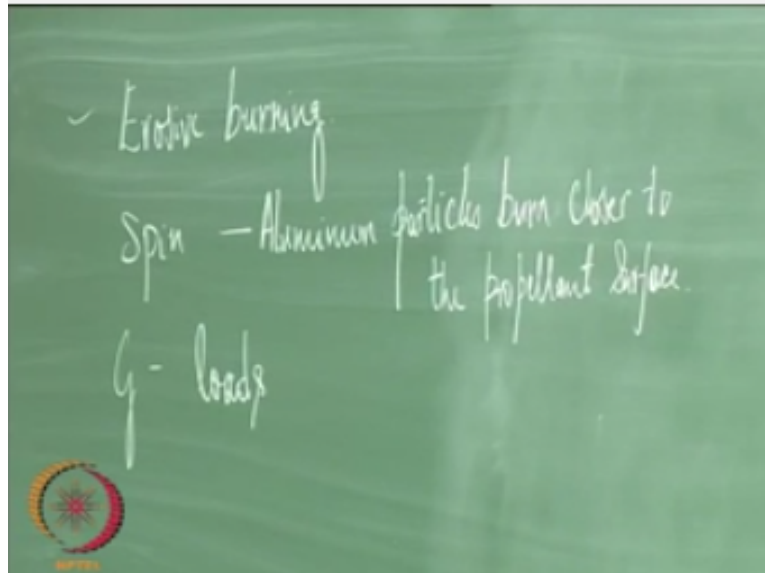 Erosive burning
Spin – Aluminum particles burn closer to
the propellant surface.
G - loads
NPTEL